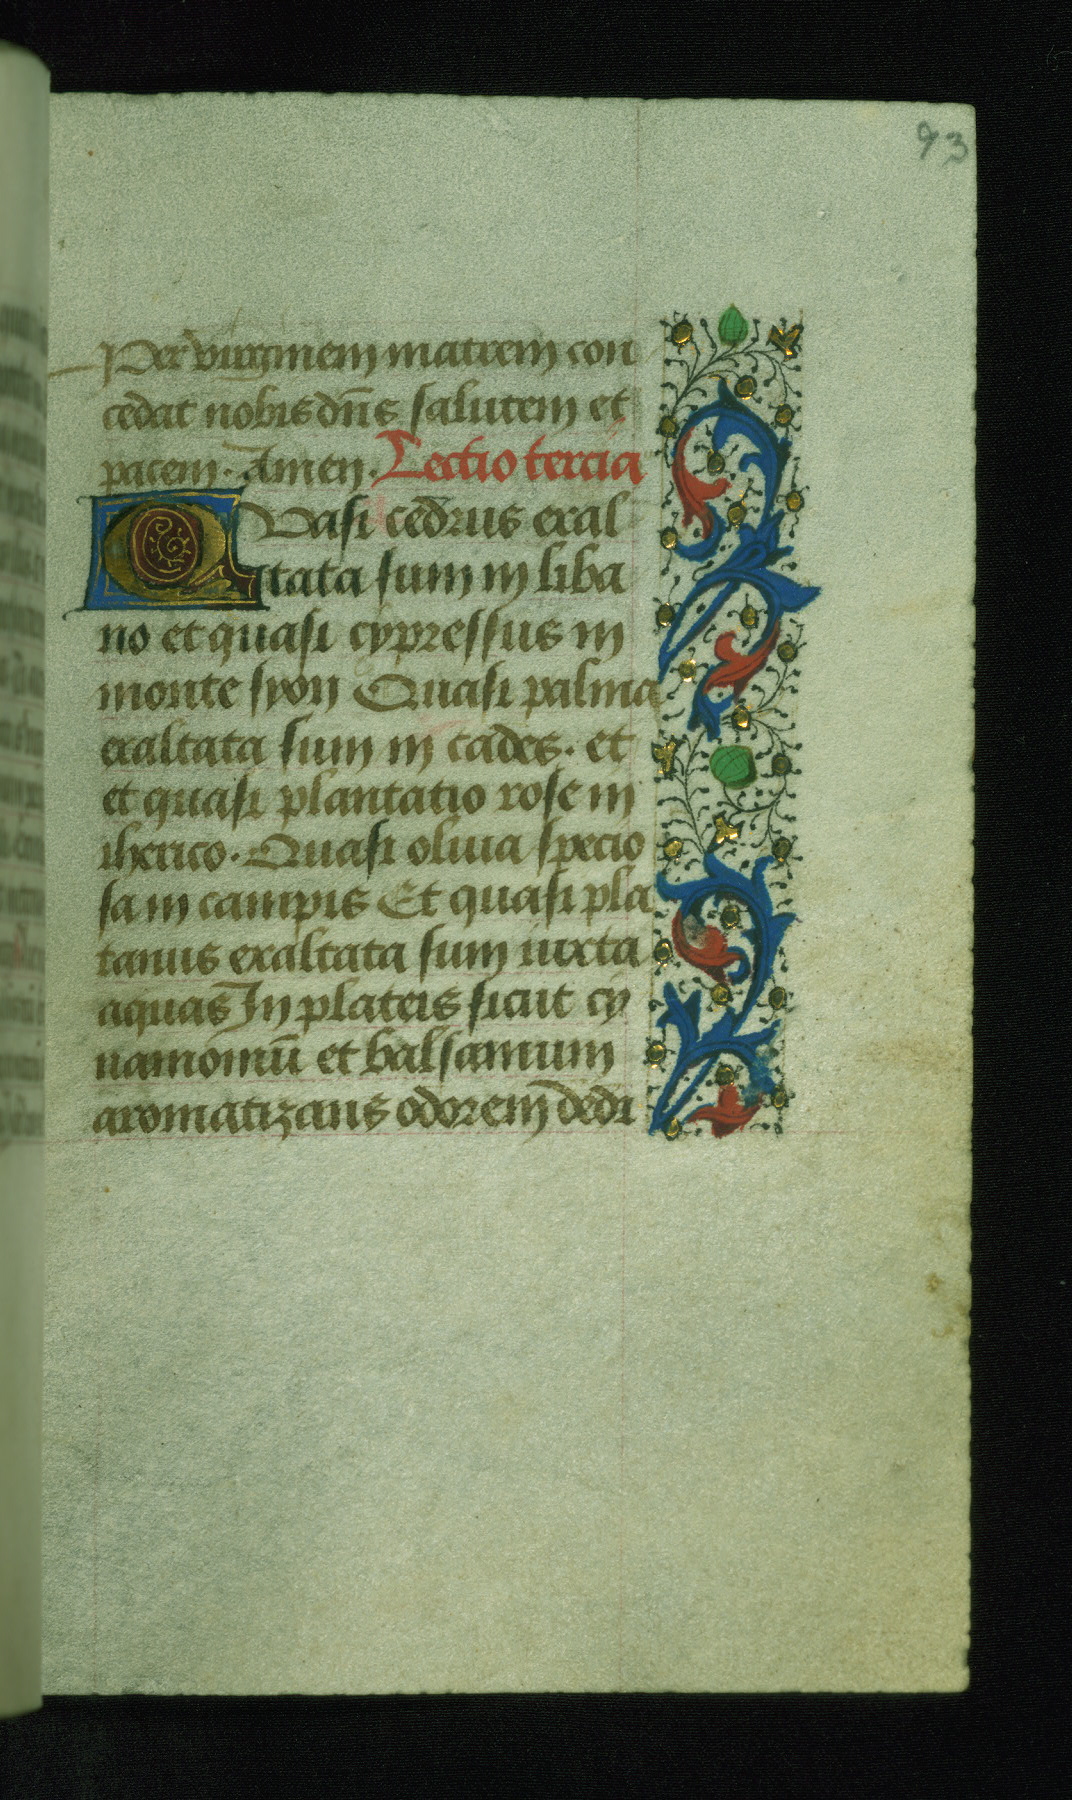 93
Per virginem matrem con
cedat nobis dn̄s salutem et
pacem. Amen. Lectio tercia
QVasi cedrus exal
tata sum in liba
no et quasi cypressus in
monte syon Quasi palma
exaltata sum in cades. et
et quasi plantatio rose in
iherico. Quasi oliua specio
sa in campis Et quasi pla
tanus exaltata sum iuxta
aquas In plateis sicut cy
namomū et balsamum
aromatizans odorem dedi